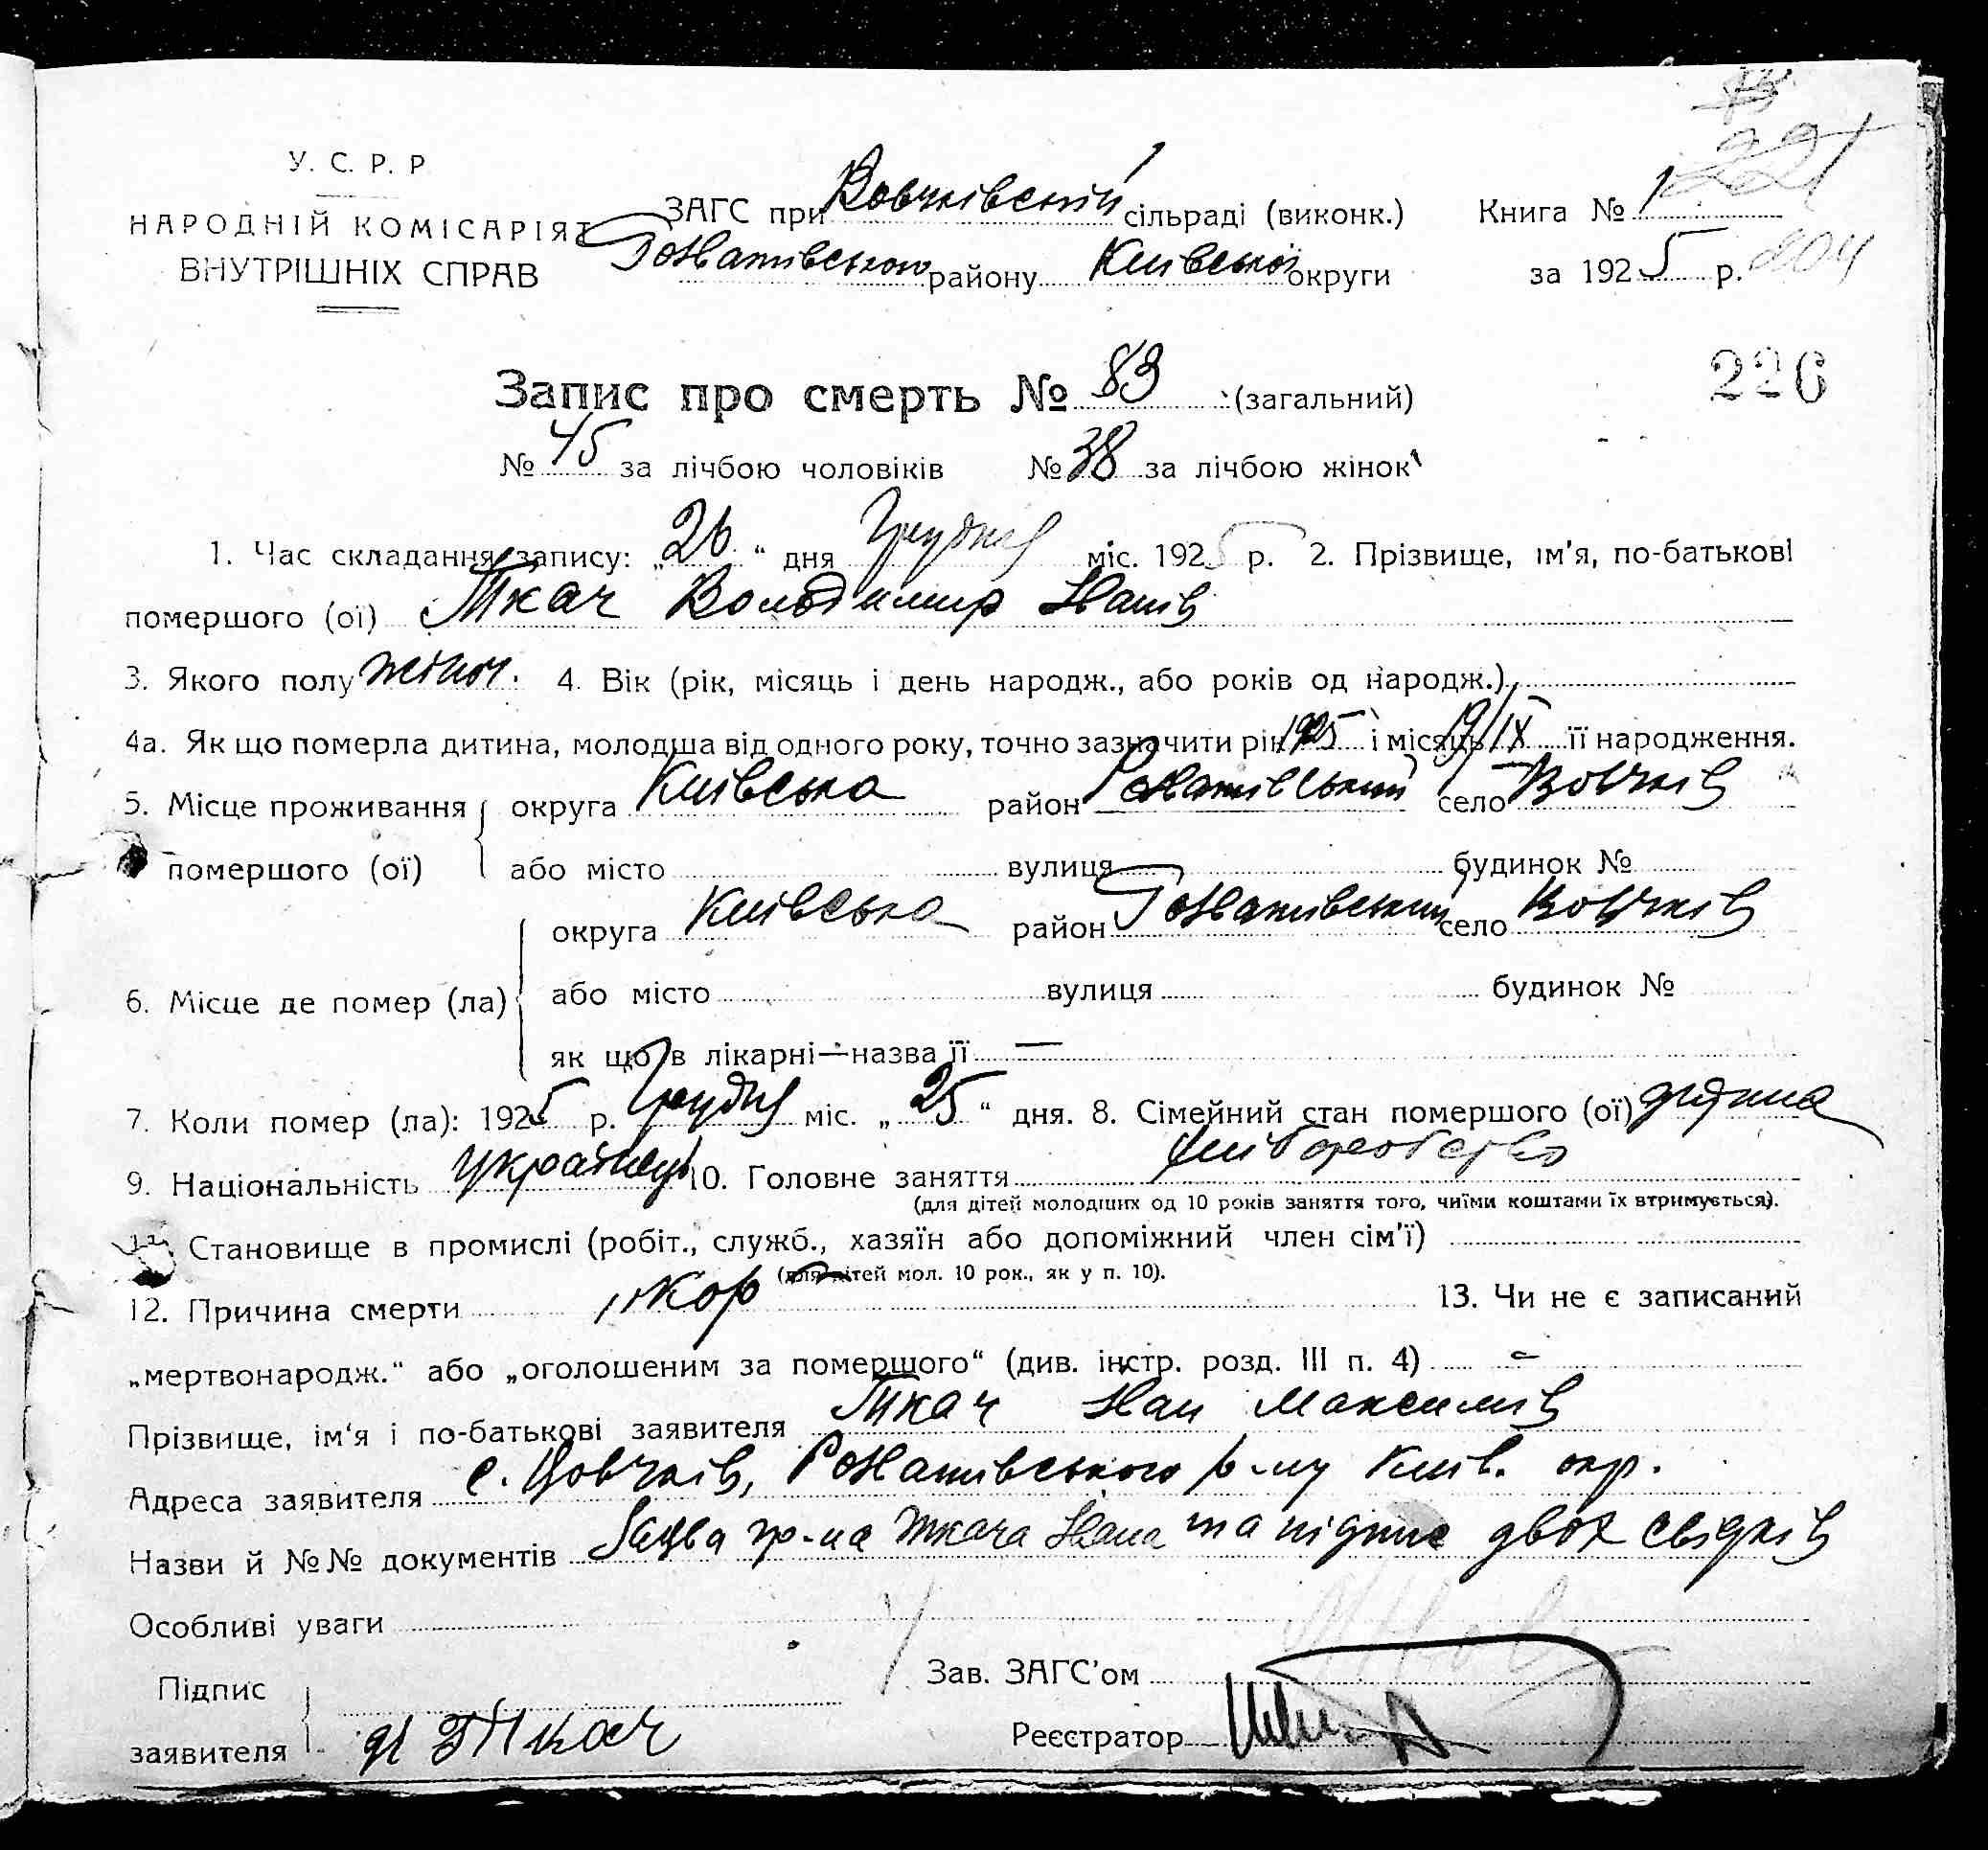 У. С. Р. Р
НАРОДНІЙ КОМІСАРІЯТ
ВНУТРІШНІХ СПРАВ
ЗАГС при Вовчківській сільраді (виконк.)
Рокитнівського району Київської округи
Книга № 1
за 1925 р.
226
Запис про смерть № 83 (загальний)
№ 45 за лічбою чоловіків № 38 за лічбою жінок
1. Час складання запису: „26“ дня Грудня міс. 1925 р. 2. Прізвище, ім'я, по-батькові
помершого (ої) Ткач Володимир Іванів
3. Якого полу жіноч. 4. Вік (рік, місяць і день народж., або років од народж.)
4а. Як що померла дитина, молодша від одного року, точно зазначити рік 1925 і місяць 19/IX її народження.
5. Місце проживання помершого (ої) округа Київська район село Вовчків
або місто вулиця будинок №
6. Місце де помер (ла) округа Київська район село Вовчків
або місто вулиця будинок №
як що в лікарні—назва її —
7. Коли помер (ла): 1925 р. Грудня міс. „25“ дня. 8. Сімейний стан помершого (ої) дитина
9. Національність Українець 10. Головне заняття хліборобство
(для дітей молодших од 10 років заняття того, чиїми коштами їх втримується).
Становище в промислі (робіт., служб., хазяїн або допоміжний член сім'ї)
(для дітей мол. 10 рок., як у п. 10).
12. Причина смерти Кор 13. Чи не є записаний
„мертвонародж.“ або „оголошеним за помершого“ (див. інстр. розд. III п. 4) -
Прізвище, ім'я і по-батькові заявителя Ткач Іван Максимів
Адреса заявителя с. Вовчків, р-ну Київ. окр.
Назви й №№ документів Заява гр-на Ткача Івана та підпис двох свідків
Особливі уваги
Підпис заявителя Ткач
Зав. ЗАГС'ом
Реєстратор